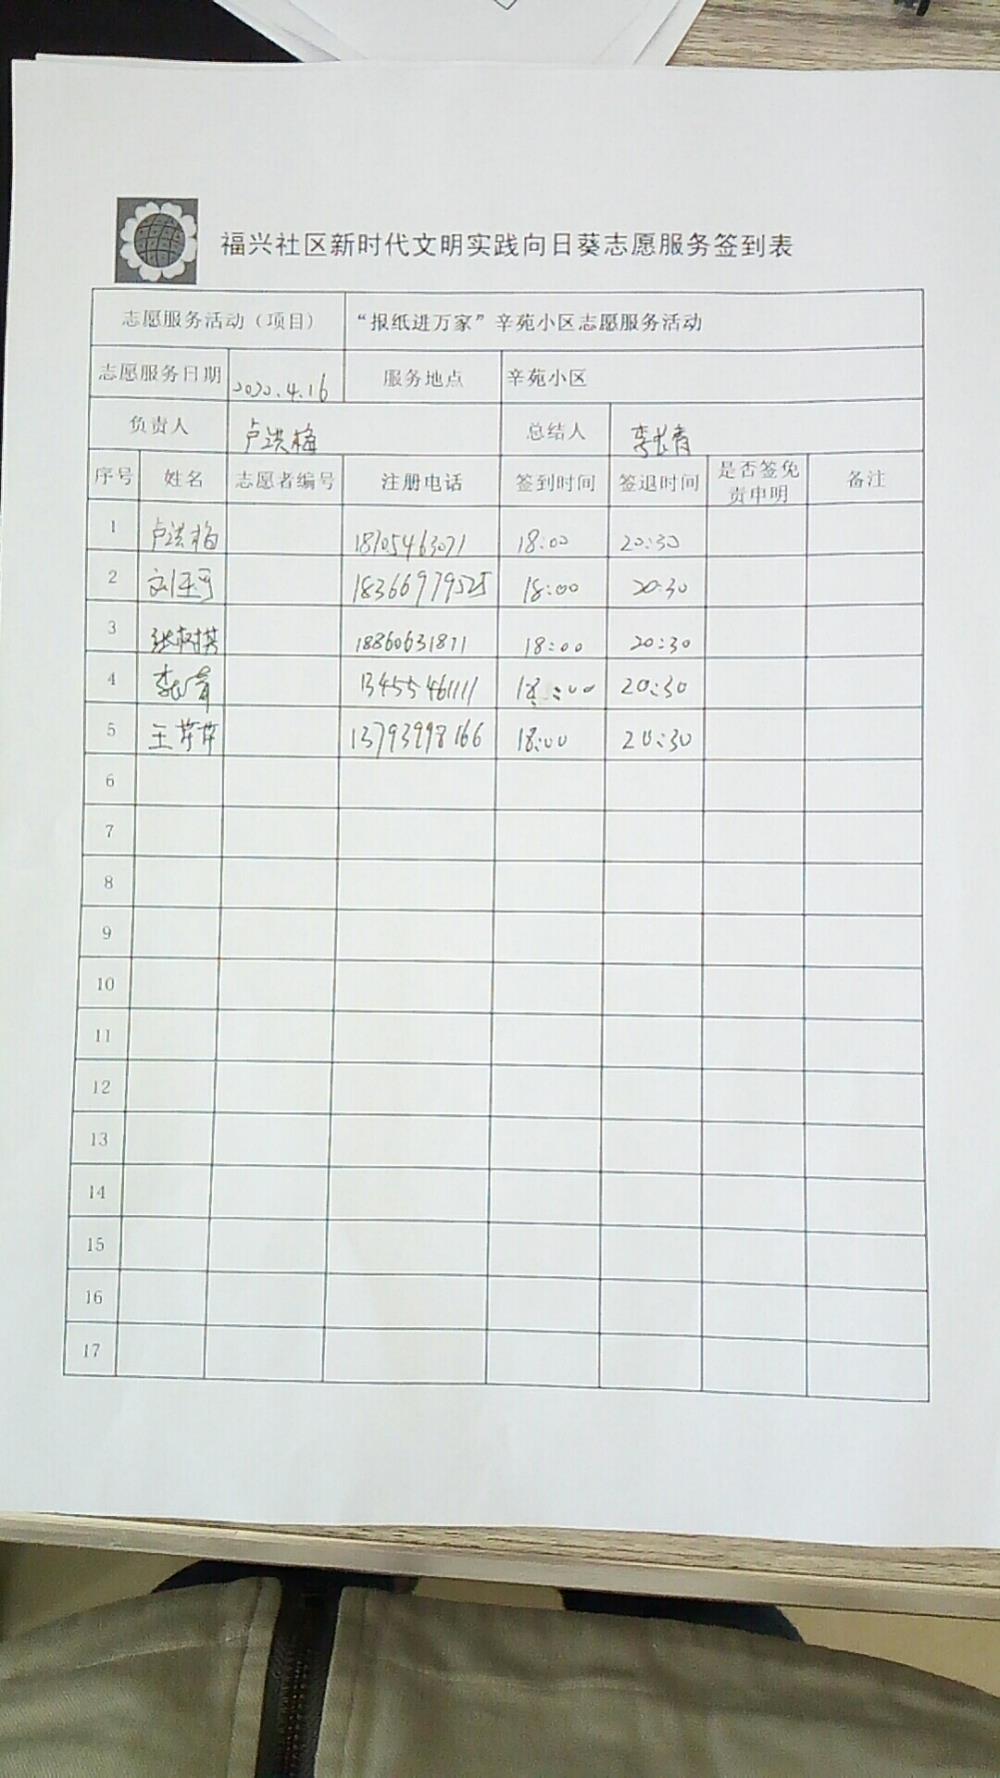 福兴社区新时代文明实践向日葵志愿服务签到表
志愿服务活动（项目） “报纸进万家”辛苑小区志愿服务活动
志愿服务日期 2022.4.16 服务地点 辛苑小区
负责人 卢洪梅 总结人 李长青
序号 姓名 志愿者编号 注册电话 签到时间 签退时间 是否签免责申明 备注
1 卢洪梅 18705463071 18:00 20:30
2 刘亚可 18366979525 18:00 20:30
3 张树祺 18860631871 18:00 20:30
4 李长青 13455461111 18:00 20:30
5 王芹芹 13793998166 18:00 20:30
6
7
8
9
10
11
12
13
14
15
16
17